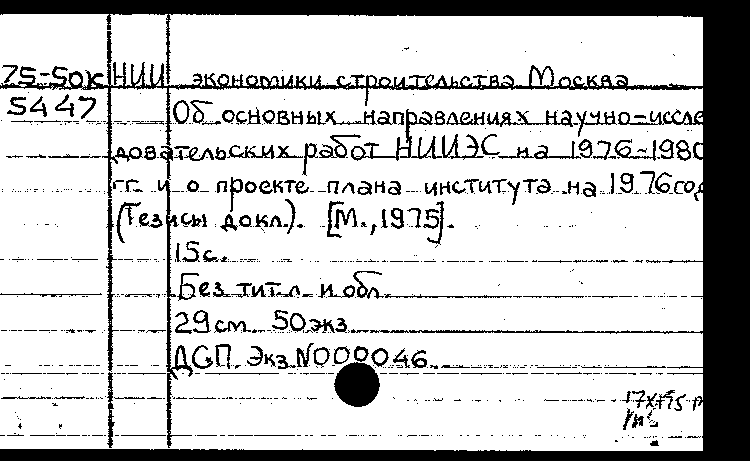 75-50к НИИ экономики строительства Москва
5447 Об основных направлениях научно-иссле
довательских работ НИИЭС на 1976-1980
гг. и о проекте плана института на 1976 год
(Тезисы докл.). [М.,1975].
15с.
Без тит.л. и обл.
29см. 50экз.
ДСП. Экз.N000046.